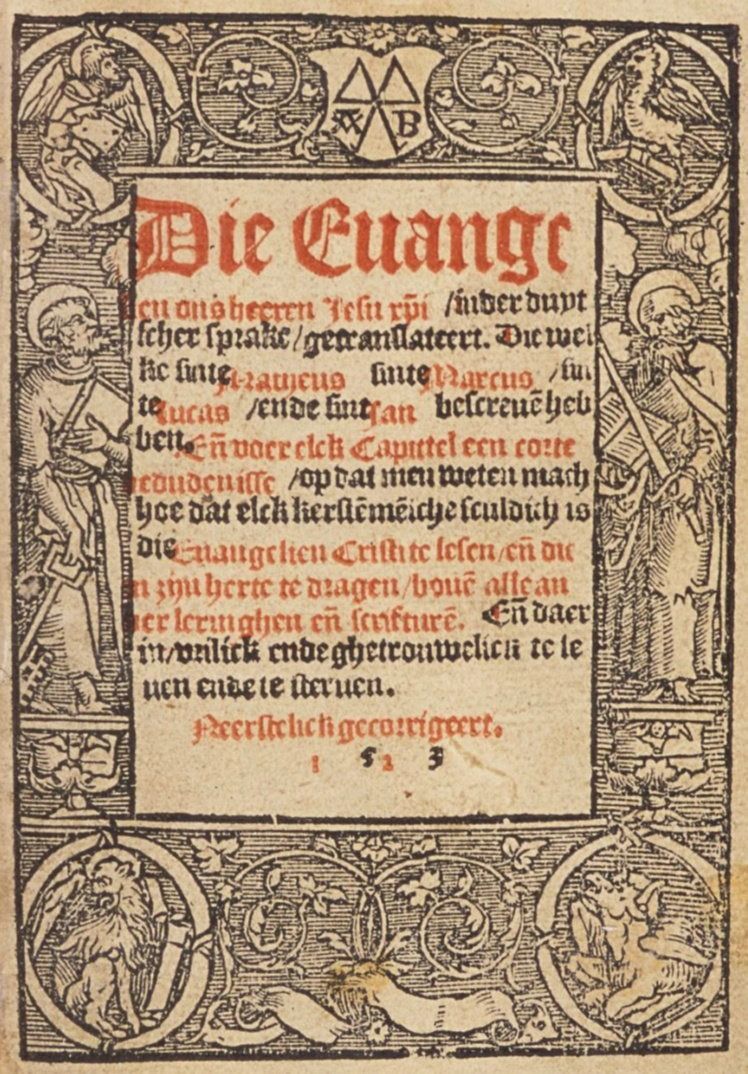 A B
Die Euange
lien ons heeren Jesu xp̄i /inder duyt
scher sprake/getranslateert. Die wel
ke sinte Matheus sinte Marcus /sin
te Lucas /ende sint Jan bescreuē heb
ben. Eñ voer elck Capittel een corte
bedudenisse /op dat men weten mach
hoe dat elck kerstē mēsche sculdich is
die Euangelien Cristi te lesen/eñ die
in zijn herte te dragen/bouē alle an
der leringhen eñ scrifturē. Eñ daer
in/vrilick ende ghetrouwelick te le
uen ende te steruen.
Neerstelick gecorrigeert.
1 5 2 3